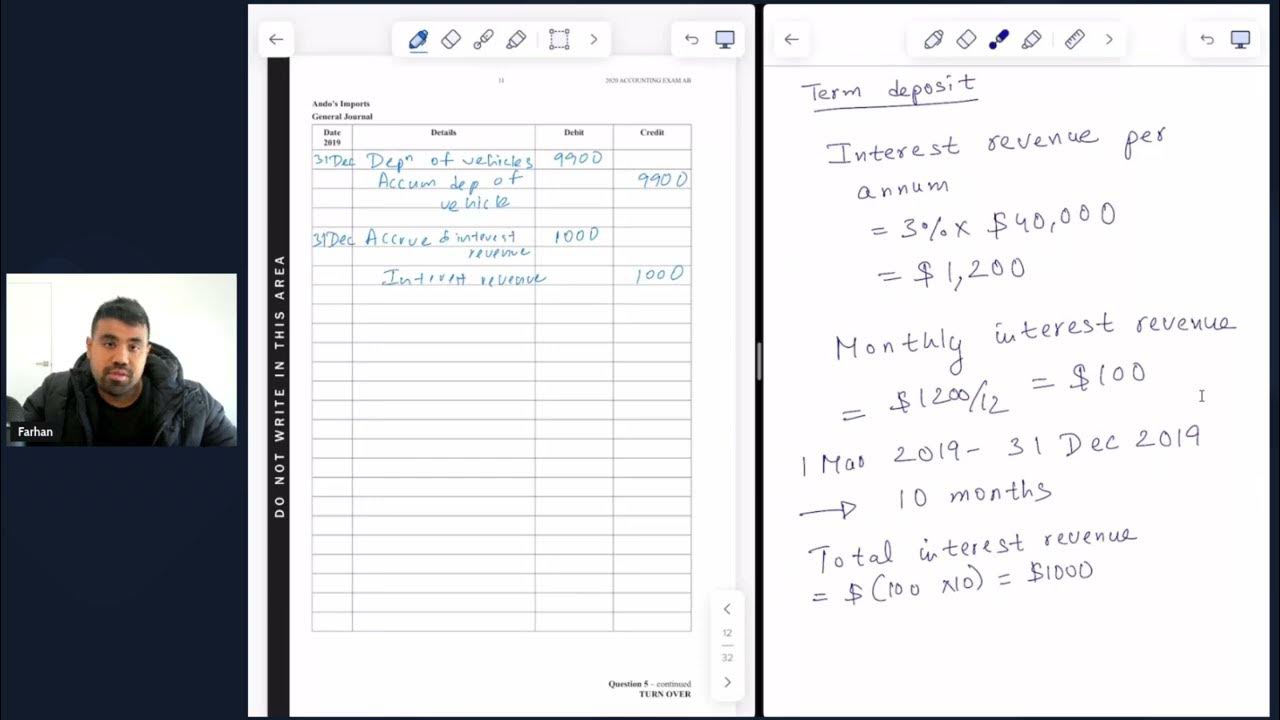 11
2020 ACCOUNTING EXAM AB
Ando's Imports
General Journal
Date
2019
Details
Debit
Credit
31 Dec Depⁿ of vehicles 9900
Accum dep of 9900
vehicle
31 Dec Accrued interest 1000
revenue
Interest revenue 1000
DO NOT WRITE IN THIS AREA
12
32
Question 5 – continued
TURN OVER
Farhan
Term deposit
Interest revenue per
annum
= 3% x $40,000
= $1,200
Monthly interest revenue
= $1200/12 = $100
1 Mar 2019 - 31 Dec 2019
→ 10 months
Total interest revenue
= $(100 x10) = $1000